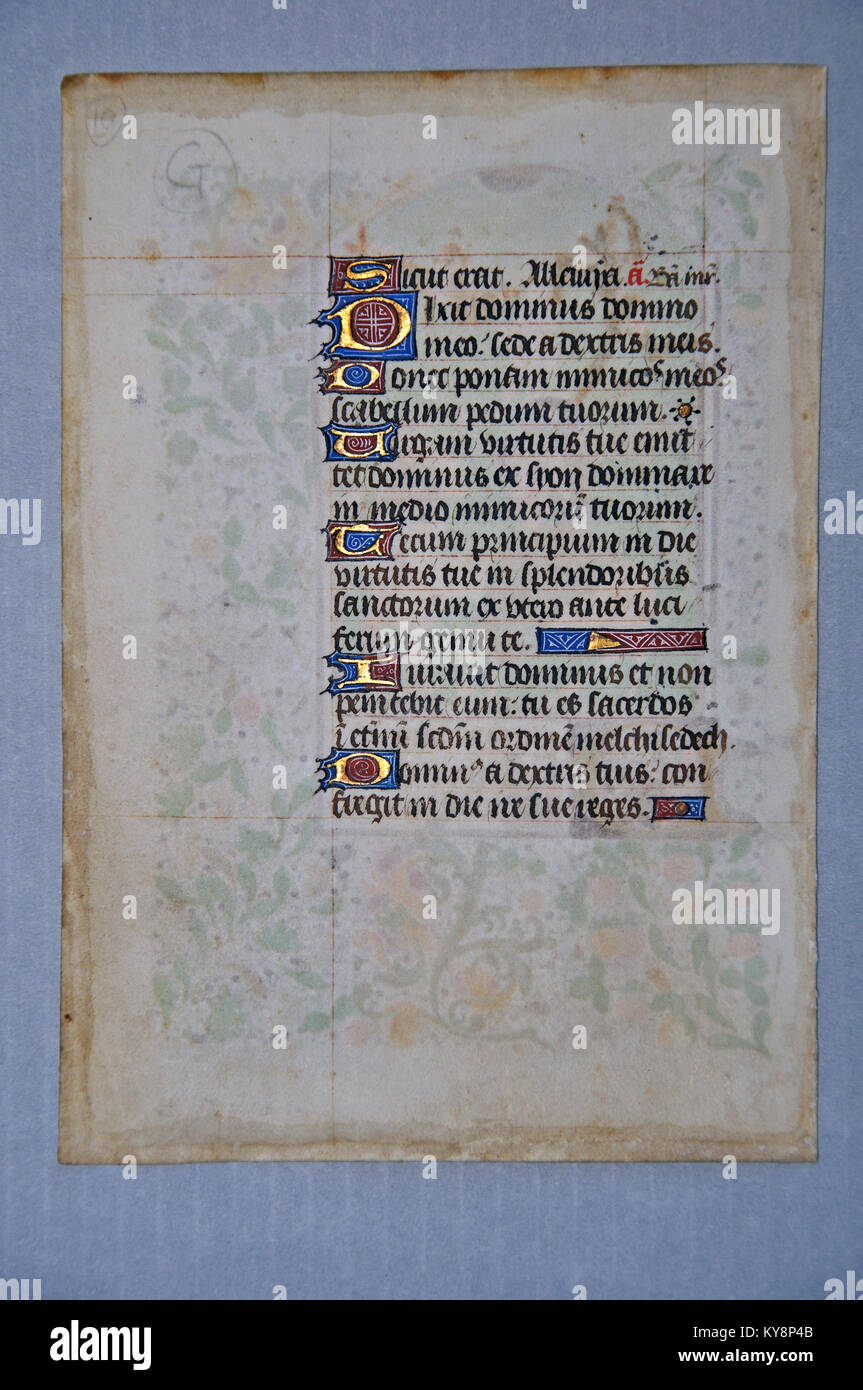 10
G
Sicut erat. Alleluya. a̅ Bn̅ mr̅.
Dixit dominus domino
meo: sede a dextris meis.
Donec ponam inimicos meos
scabellum pedum tuorum.
Uirgam virtutis tue emit
tet dominus ex syon dominare
in medio inimicoru̅ tuorum.
Tecum principium in die
virtutis tue in splendoribus
sanctorum ex vtero ante luci
ferum genui te.
Iurauit dominus et non
penitebit eum: tu es sacerdos
i̅ et̅nu̅ scd̅m ordine̅ melchisedech.
Dominꝰ a dextris tuis: con
fregit in die ire sue reges.
a
alamy
alamy
Image ID: KY8P4B
www.alamy.com